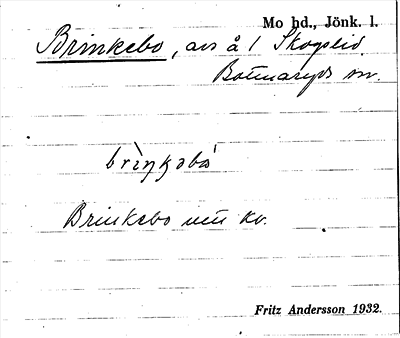 Mo hd., Jönk. l.
Brinkebo, avs å 1 Skogslid,
Bottnaryds sn.
brìŋkəbó
Brinkebo utt kv.
Fritz Andersson 1932.